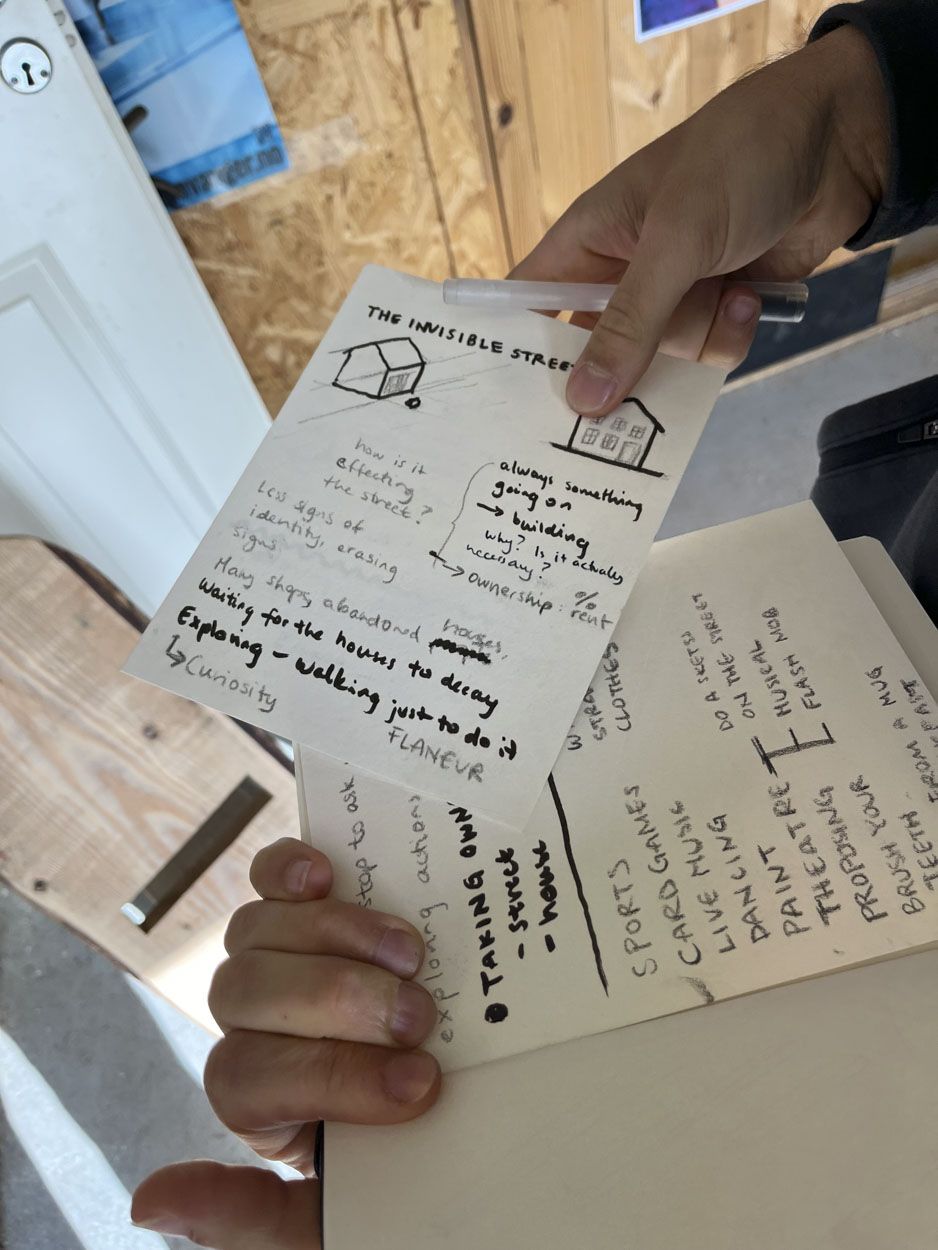 THE INVISIBLE STREET
how is it
effecting
the street?
Less signs of
identity, erasing
signs
always something
going on
→ building
why? Is it actually
necessary?
→ ownership: % rent
Many shops, abandoned houses,
Waiting for the houses to decay
Exploring - Walking just to do it
↳ Curiosity
FLANEUR
stop to ask
exploring actions
TAKING OWN
- street
- house
CLOTHES
SPORTS
CARD GAMES
LIVE MUSIC
DANCING
PAINT
THEATRE
DO A SKETSJ
ON THE STREET
MUSICAL
FLASH MOB
PROPOSING
BRUSH YOUR
TEETH
FROM A MUG